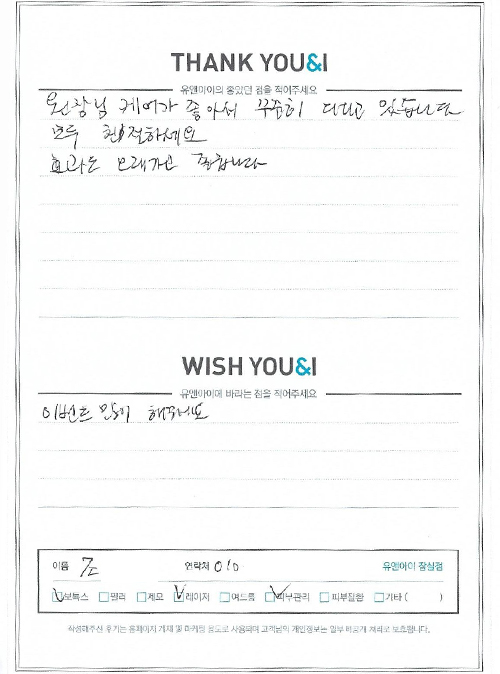 THANK YOU&I
유앤아이의 좋았던 점을 적어주세요
원장님 케어가 좋아서 꾸준히 다니고 있습니다
모두 친절하세요
효과도 오래가고 좋습니다
WISH YOU&I
유앤아이에 바라는 점을 적어주세요
이벤트 많이 해주세요
이름 연락처 010 유앤아이 잠실점
보톡스 필러 제모 레이저 여드름 피부관리 피부질환 기타 ( )
작성해주신 후기는 홈페이지 게재 및 마케팅 용도로 사용되며 고객님의 개인정보는 일부 비공개 처리로 보호됩니다.